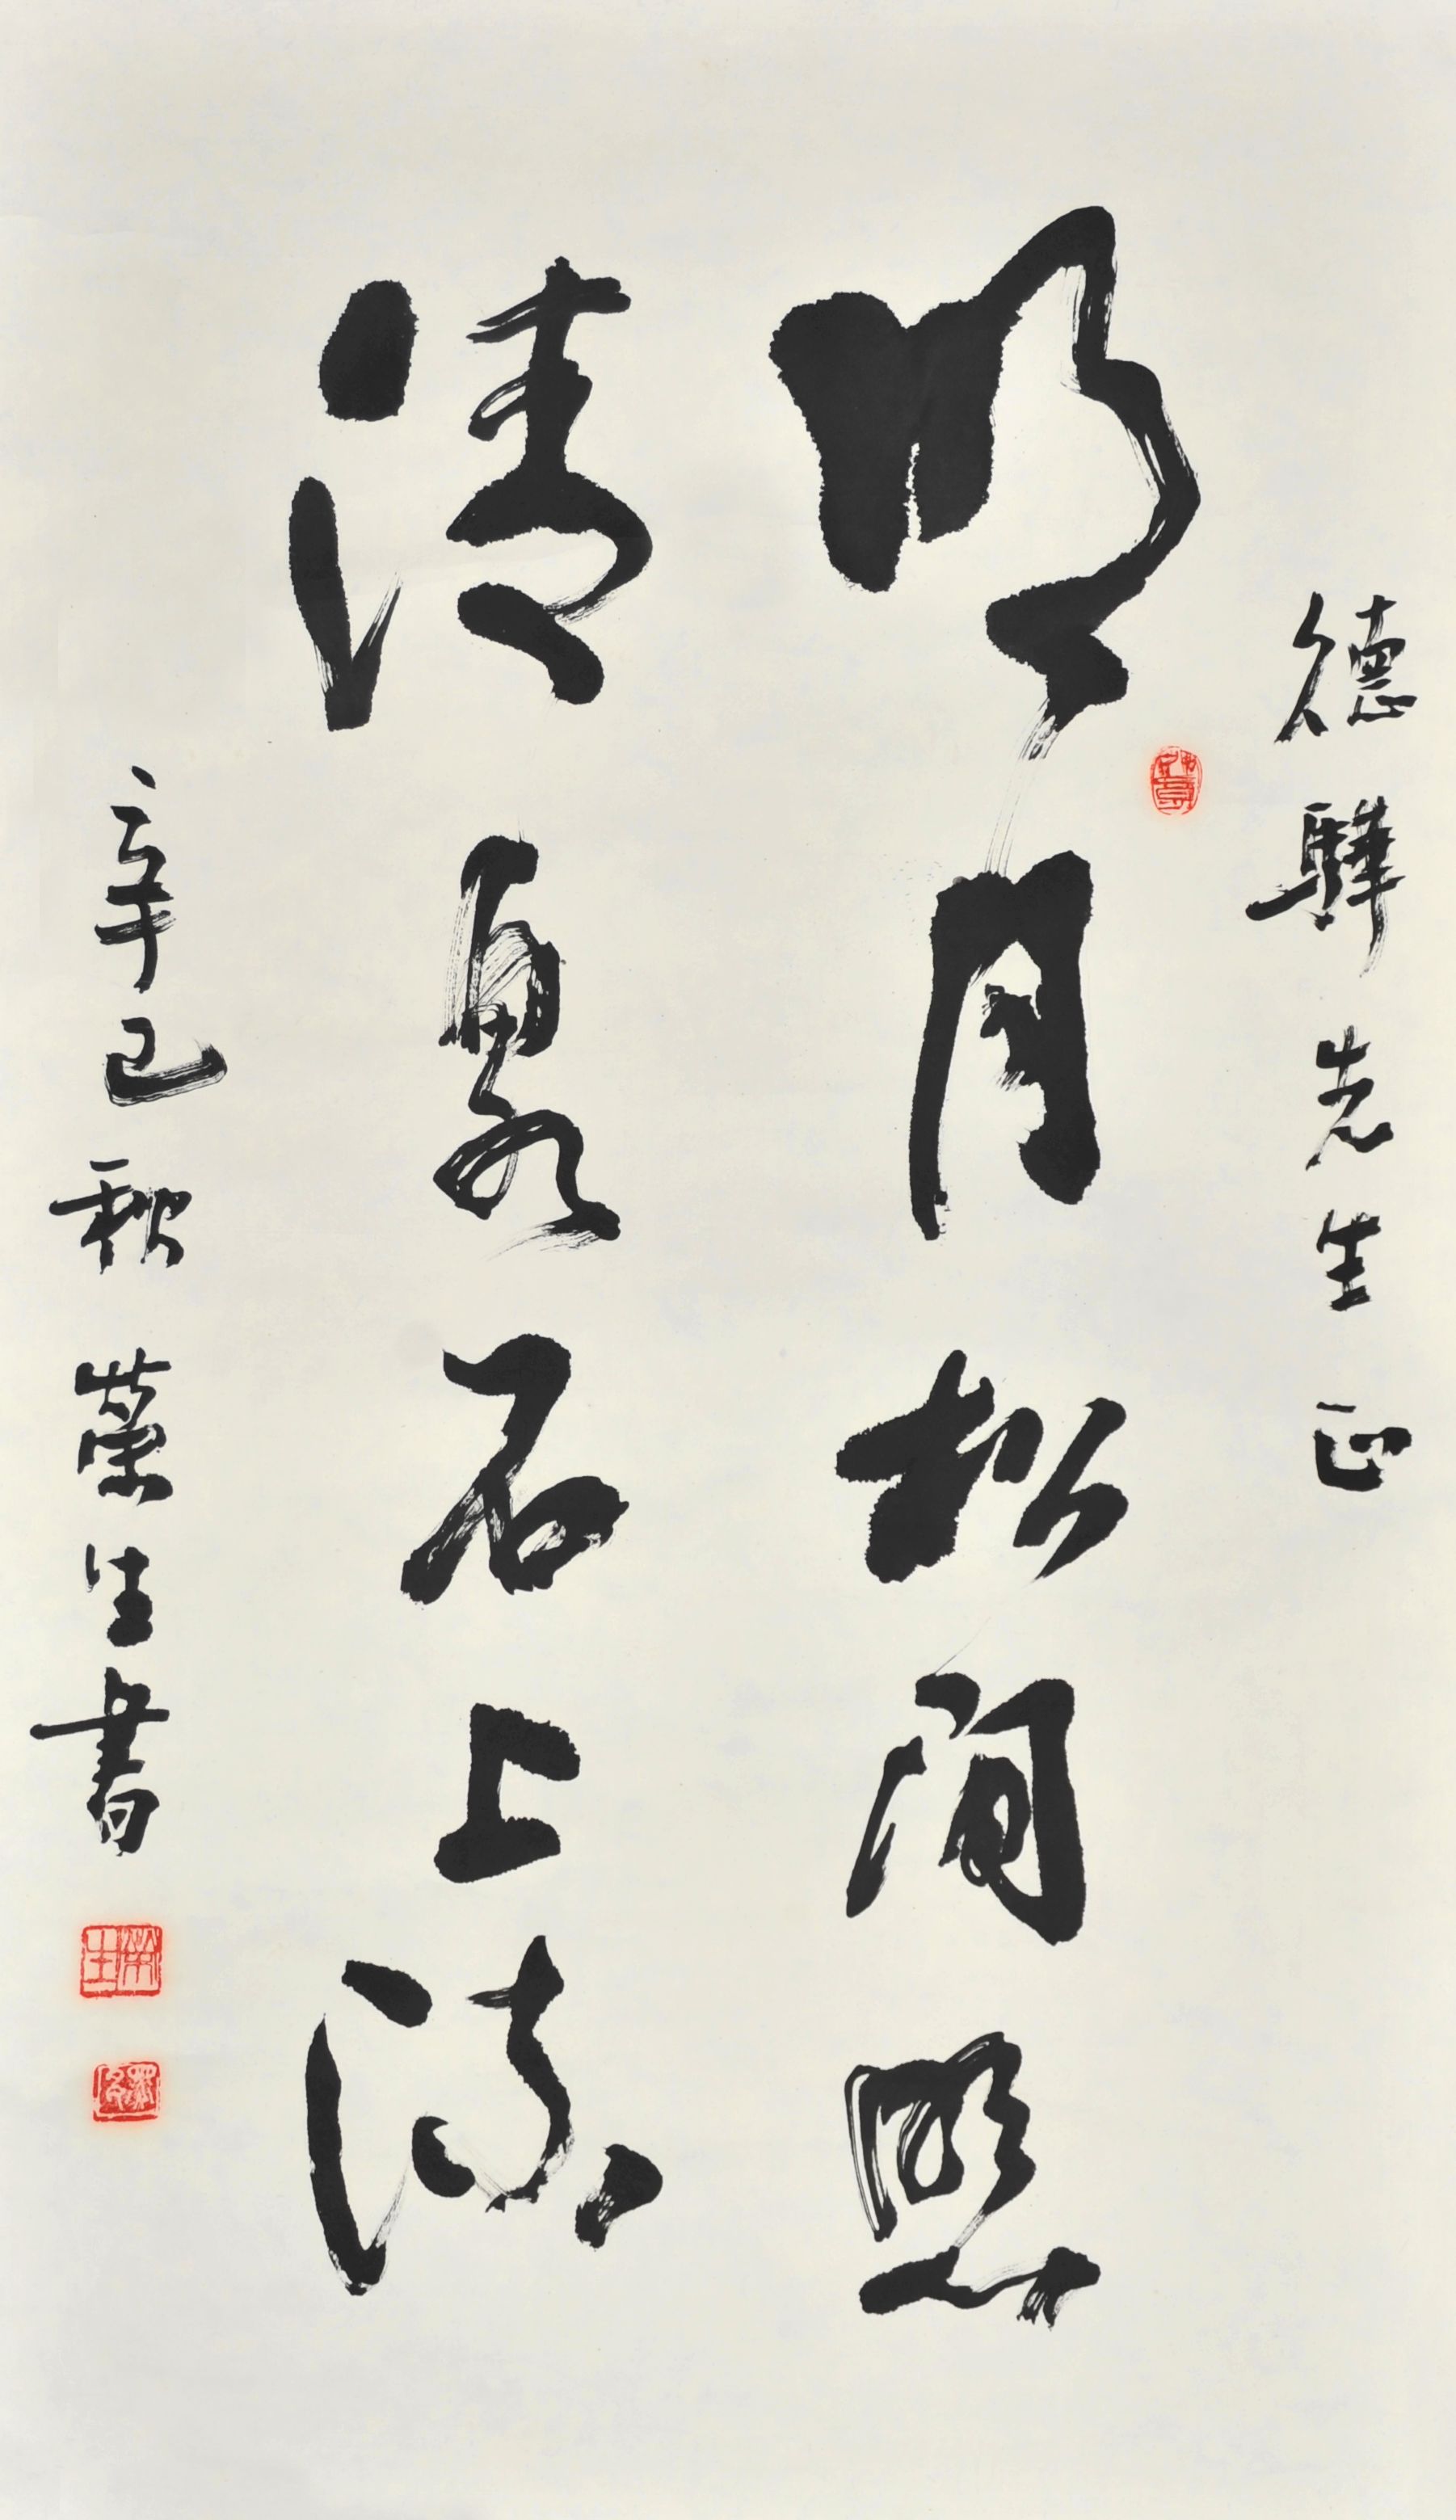 德驊先生正
明月松間照
清泉石上流
辛巳秋 榮生書
榮生